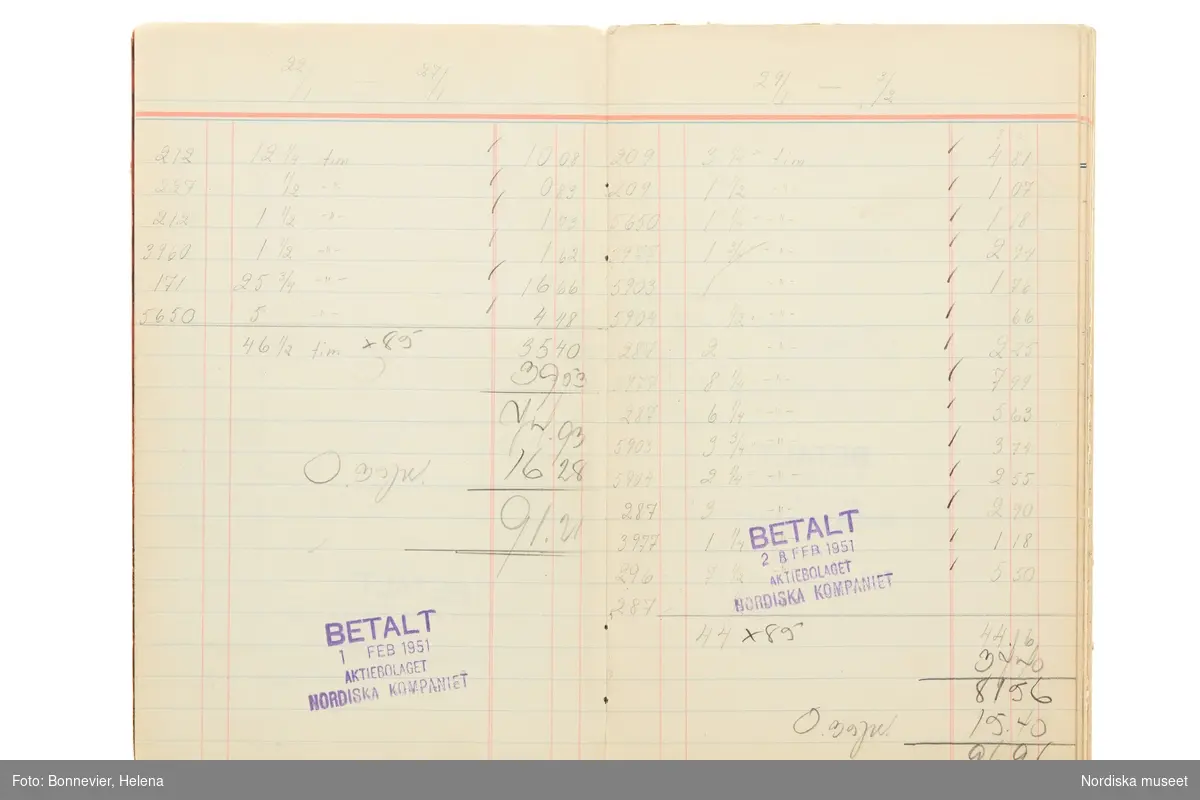 22/1 — 27/1
212 12 1/4 tim 10 08
287 1/2 -"- 0 83
212 1 1/2 -"- 1 73
3960 1 1/2 -"- 1 62
171 25 3/4 -"- 16 66
5650 5 -"- 4 48
46 1/2 tim × 85 35 40
39 53
16 28
91.21
BETALT
1 FEB 1951
AKTIEBOLAGET
NORDISKA KOMPANIET
29/1 — 3/2
209 tim 4 81
209 1 1/2 -"- 1 07
5650 1 1/4 -"- 1 8
1 3/4 -"- 2 94
5903 1 -"- 1 76
5904 1/2 -"- 66
287 2 -"- 2 25
3977 8 1/4 -"- 7 99
287 6 1/4 -"- 5 63
5903 3 3/4 -"- 3 73
2 1/4 -"- 2 55
287 3 -"- 2 90
3977 1 1/4 1 18
296 5 50
287
BETALT
28 FEB 1951
AKTIEBOLAGET
NORDISKA KOMPANIET
44 × 85 44.16
37 40
81 56
15.40
Foto: Bonnevier, Helena
Nordiska museet